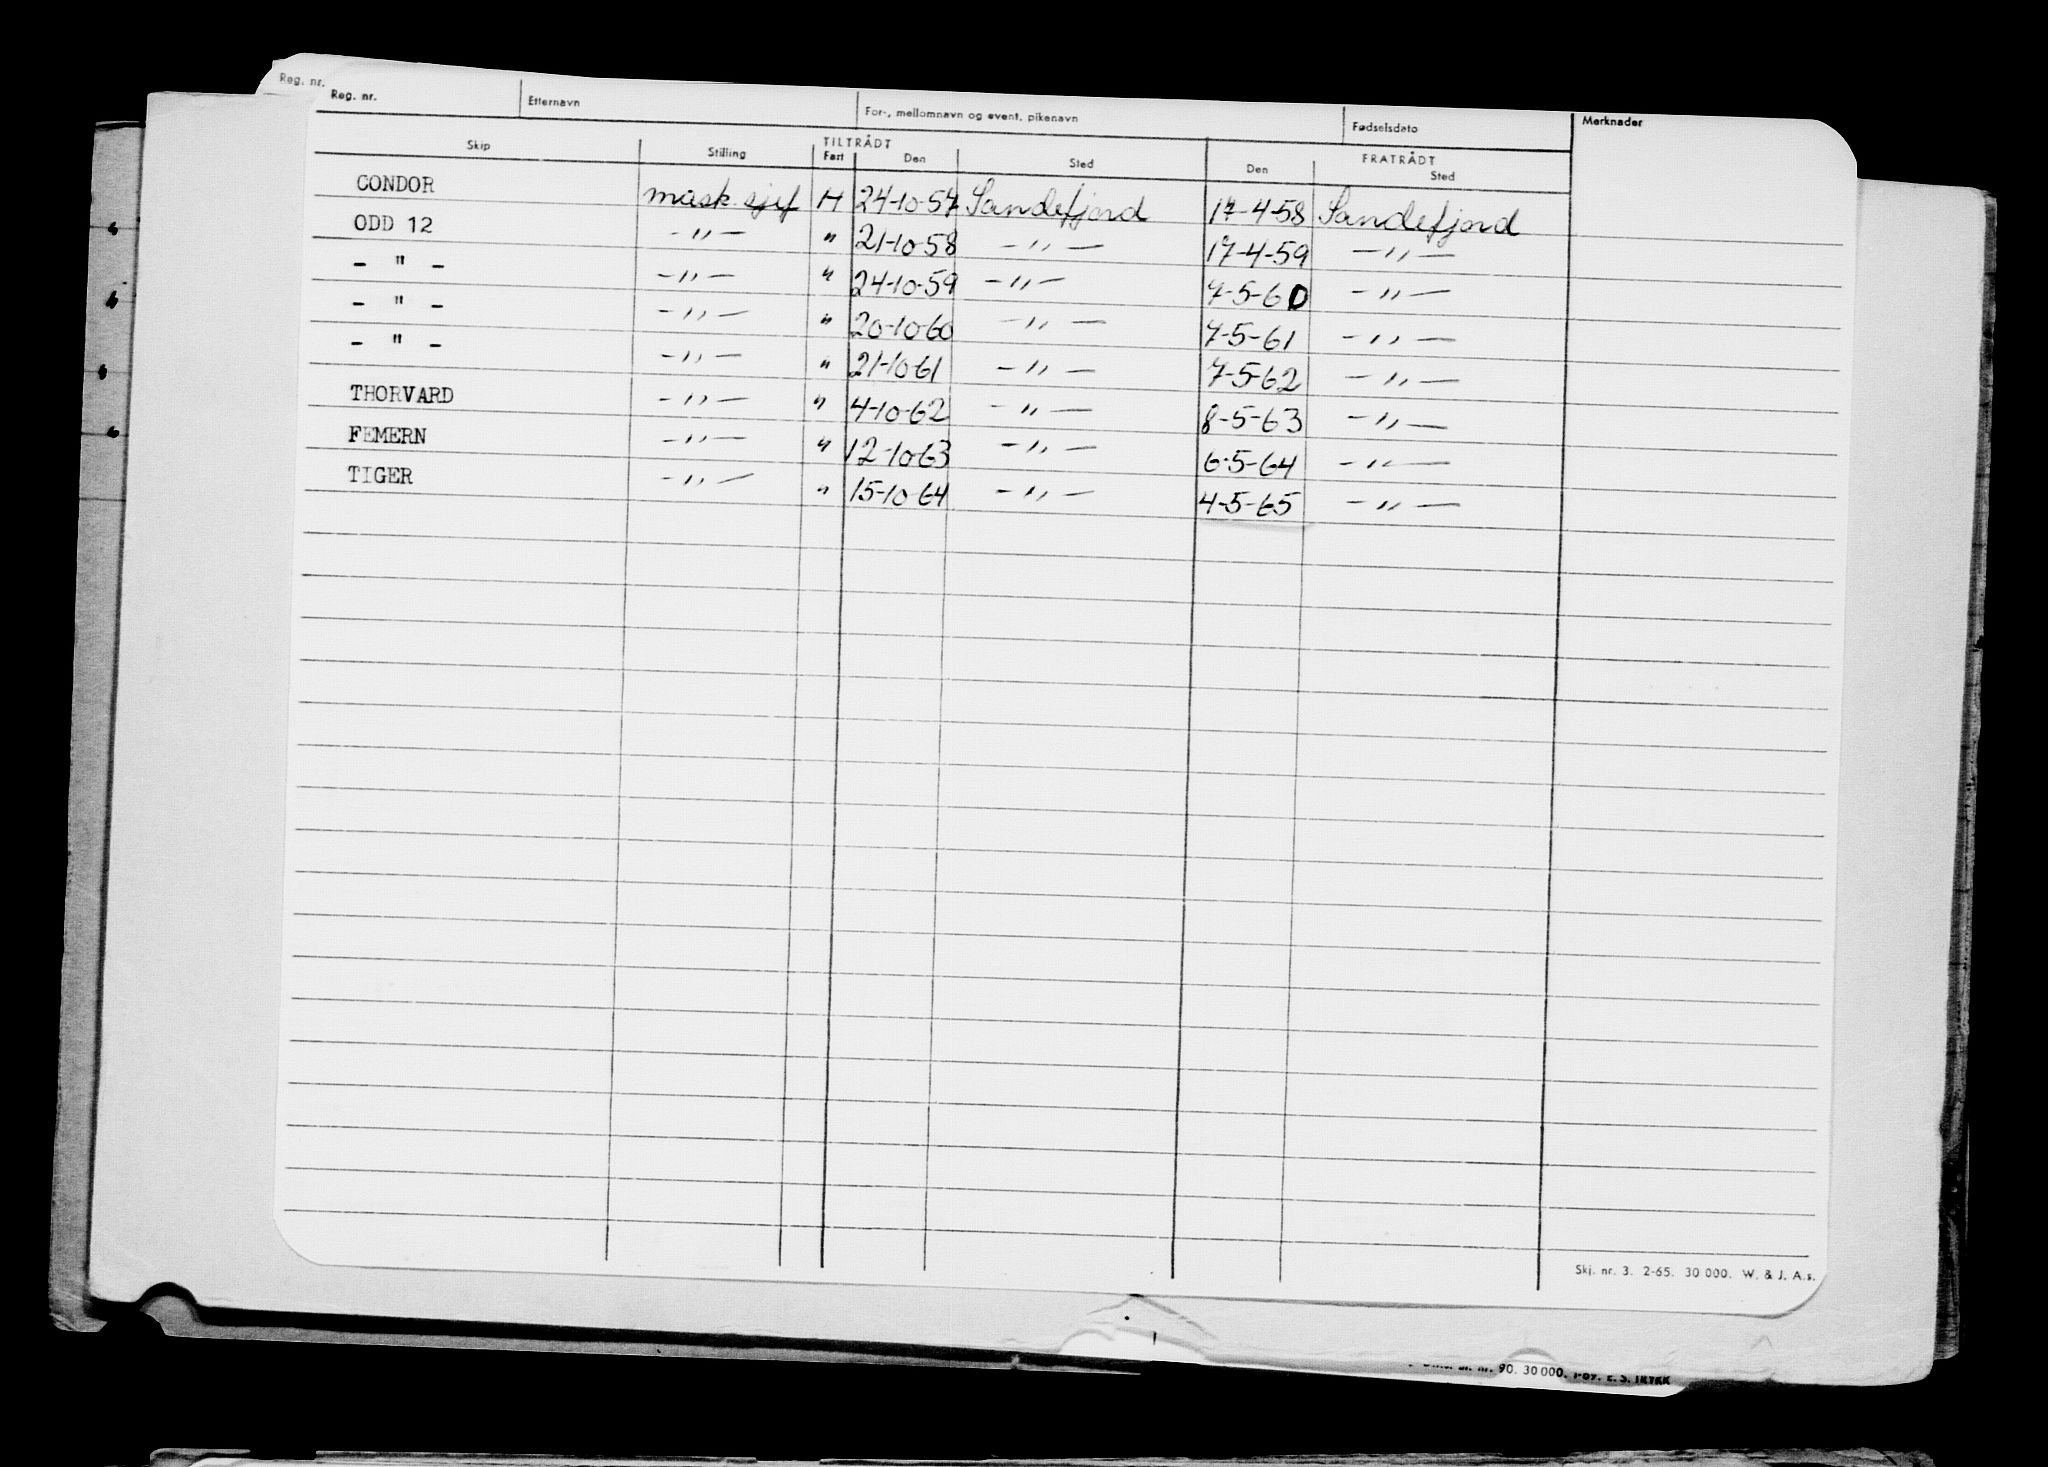 Reg. nr.
Reg. nr. Etternavn For-, mellomnavn og event. pikenavn Fødselsdato Merknader
Skip Stilling TILTRÅDT FRATRÅDT
Fart Den Sted Den Sted
CONDOR mask sjef H 24-10-57 Sandefjord 17-4-58 Sandefjord
ODD 12 -"- " 21-10-58 -"- 17-4-59 -"-
- " - -"- " 24-10-59 -"- 7-5-60 -"-
- " - -"- " 20-10-60 -"- 7-5-61 -"-
- " - -"- " 21-10-61 -"- 7-5-62 -"-
THORVARD -"- " 4-10-62 -"- 8-5-63 -"-
FEMERN -"- " 12-10-63 -"- 6-5-64 -"-
TIGER -"- " 15-10-64 -"- 4-5-65 -"-
Skj. nr. 3. 2-65. 30 000. W. & J. A.s.
nr. 90. 30 000.